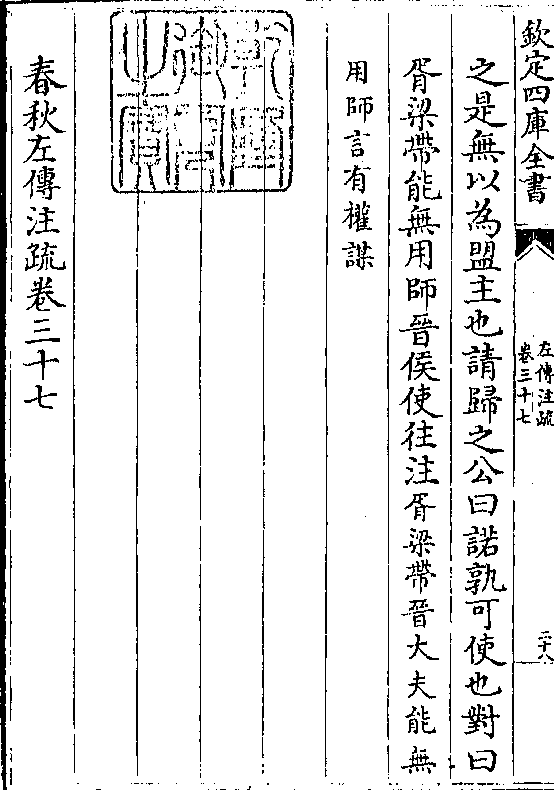 欽定四庫全書
左傳注疏
卷三十七
二十八
之是無以為盟主也請歸之公曰諾孰可使也對曰
胥梁帶能無用師晉侯使往注胥梁帶晉大夫能無
用師言有權謀
乾隆御覽之寶
春秋左傳注疏卷三十七